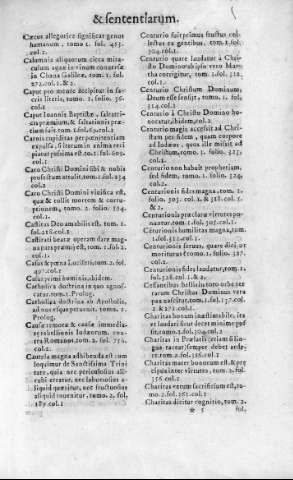 & sententiarum.
Cæcus allegorice significat genus
humanum, tomo 1. fol. 463.
col.1
Calumnia aliquorum circa mira-
culum aquæ in vinum conuersæ
in Chana Galilææ, tom. 1. fol.
272.col.1. & 2
Caput pro mente accipitur in sa-
cris literis, tomo 2. folio. 36.
col.1
Caput Ioannis Baptistæ, saltatri-
cis præmium, & saltationis præ-
tium fuit, tom. 1.fol.63.col.1
Carnis cupiditas per pœnitentiam
expulsa, si iterum in animã reci
piatur pessima est, to.1. fol. 605.
col.1
Caro Christi Domini sibi & nobis
profuit
col.2
Caro Christi Domini viuifica est,
quæ & nostris mortem & corru-
ptionem, tomo 2. folio. 524.
col.1
Castitas Deo amabilis est, tom. 1.
col.1
Castitati beatæ operam dare mag-
na pars præmij est, tom. 1.fol.2.
col.1
Casus & pœna Luciferi, tom.2. fol.
497.col.1
Casus primi hominis, ibidem.
Catholica doctrina in quo agnos-
catur, tom.1. Prolog.
Catholica doctrina ab Apostolis,
ad nos vsque peruenit, tomo. 1.
Prolog.
Causæ remotæ & causæ immedia-
ter-
ra Romano, tom. 2. fol. 756.
col.2
Cautela magna adhibenda est cum
loquimur de Sanctissima Trini
tate, quia nec periculosius ali-
cubi erratur, nec laboriosius a-
liquid quæritur, nec fructuosius
aliquid inuenitur, tomo. 2. fol.
col.1
Centurio fuit primus fructus col-
lectus ex gentibus, tom. 1. fol.
col.1
Centurio quare laudatur à Chri-
sto Domino verò Mar-
tha corrigitur, tom. 1.fol. 312.
col.1
Centurio Christum Dominum,
Deum esse sensit, tom. 1. fol.
314.col.1
Centurio à Christo Domino ho-
noratur, ibidem, col.2
Centurio magis accessit ad Chri-
stum per fidem, quam corpore
ad Iudæos, quos ille mittit ad
Christum, tomo. 1. folio. 323.
col.2
Centurio non habuit prophetiam,
sed fidem, tomo. 1. folio. 324.
col.2
Centurionis fides magna, tom. 1.
folio. 305. col. 1. & 318. col. 5.
& 2.
Centurionis præclaræ virtutes po-
nuntur, tom.1.fol.306.col.1
Centurionis humilitas magna, tom.
1.fol.311.col.1
Centurionis seruus, quare dicitur
moriturus tomo 1. folio. 307.
col.1
Centurionis fides laudatur, tom. 1.
fol.326.col.1. & 2
Cessantibus bellis in toto orbe ter
rarum Christus Dominus vero
pax nascitur, tom.1.fol.137.col.
1. & 2
Charitas bonum inæstimabile, ita
vt laudari sicut decet minime pos-
sit, tomo 2.fol.304.col.1
Charitas in Prælatis (etiam si lin-
gua taceat) semper debet arde-
re, tom. 2. fol.356.col.1
Charitas mater bonorum est, & præ
cipua inter virtutes, tom. 2. fol.
col.1
Charitas verum sacrificium est, to-
mo. 2. fol. 261.col.1
Charitas dicitur cognitio, tom. 2.
* 5 fol.